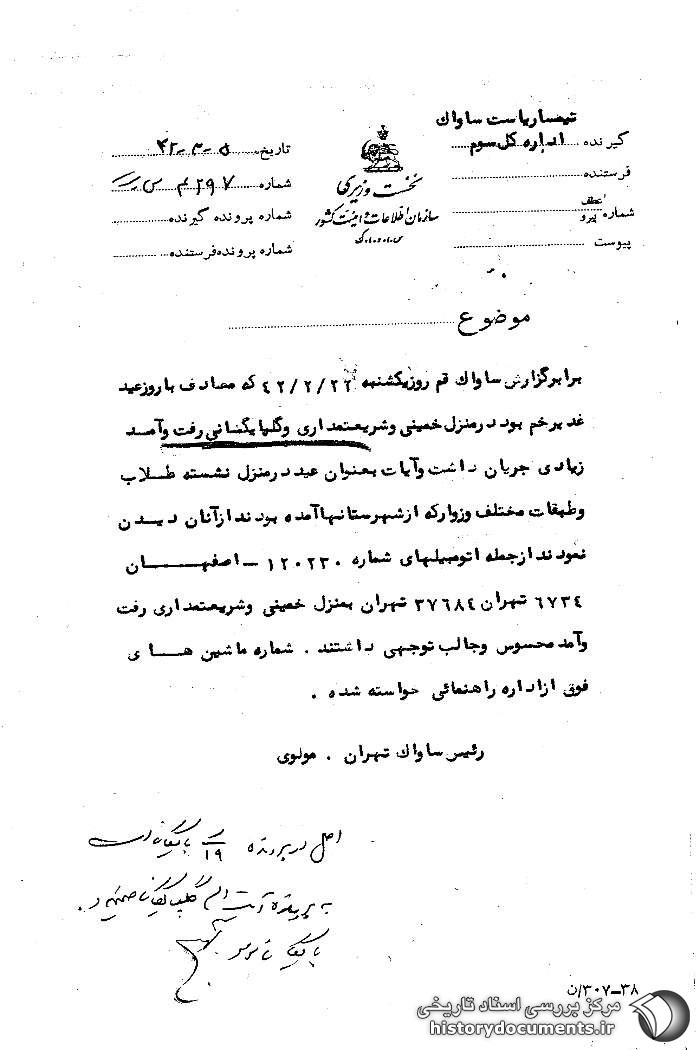 تیمسار ریاست ساواک
گیرنده اداره کل سوم
فرستنده
عطف
شماره پیرو
پیوست
نخست وزیری
سازمان اطلاعات و امنیت کشور
س.ا.و.ا.ک
تاریخ ۴۲-۳-۵
شماره ۲۹۷
شماره پرونده گیرنده
شماره پرونده فرستنده
موضوع
برابر گزارش ساواک قم روز یکشنبه ۴۲/۲/۲۲ که مصادف با روز عید
غدیر خم بود در منزل خمینی و شریعتمداری و گلپایگانی رفت و آمد
زیادی جریان داشت و آیات بعنوان عید در منزل نشسته طلاب
و طبقات مختلف و زوار که از شهرستانها آمده بودند از آنان دیدن
نمودند از جمله اتومبیلهای شماره ۱۲۰۲۳۰ - اصفهان
۶۷۳۴ تهران ۳۷۶۸۴ تهران بمنزل خمینی و شریعتمداری رفت
و آمد محسوس و جالب توجهی داشتند . شماره ماشین های
فوق از اداره راهنمائی خواسته شده .
رئیس ساواک تهران . مولوی
اصل در پرونده ۱۹ بایگانی است
به پرونده آیت اله گلپایگانی ضمیمه و
بایگانی شود
۳۰۷-۳۸/ن
مرکز بررسی اسناد تاریخی
historydocuments.ir